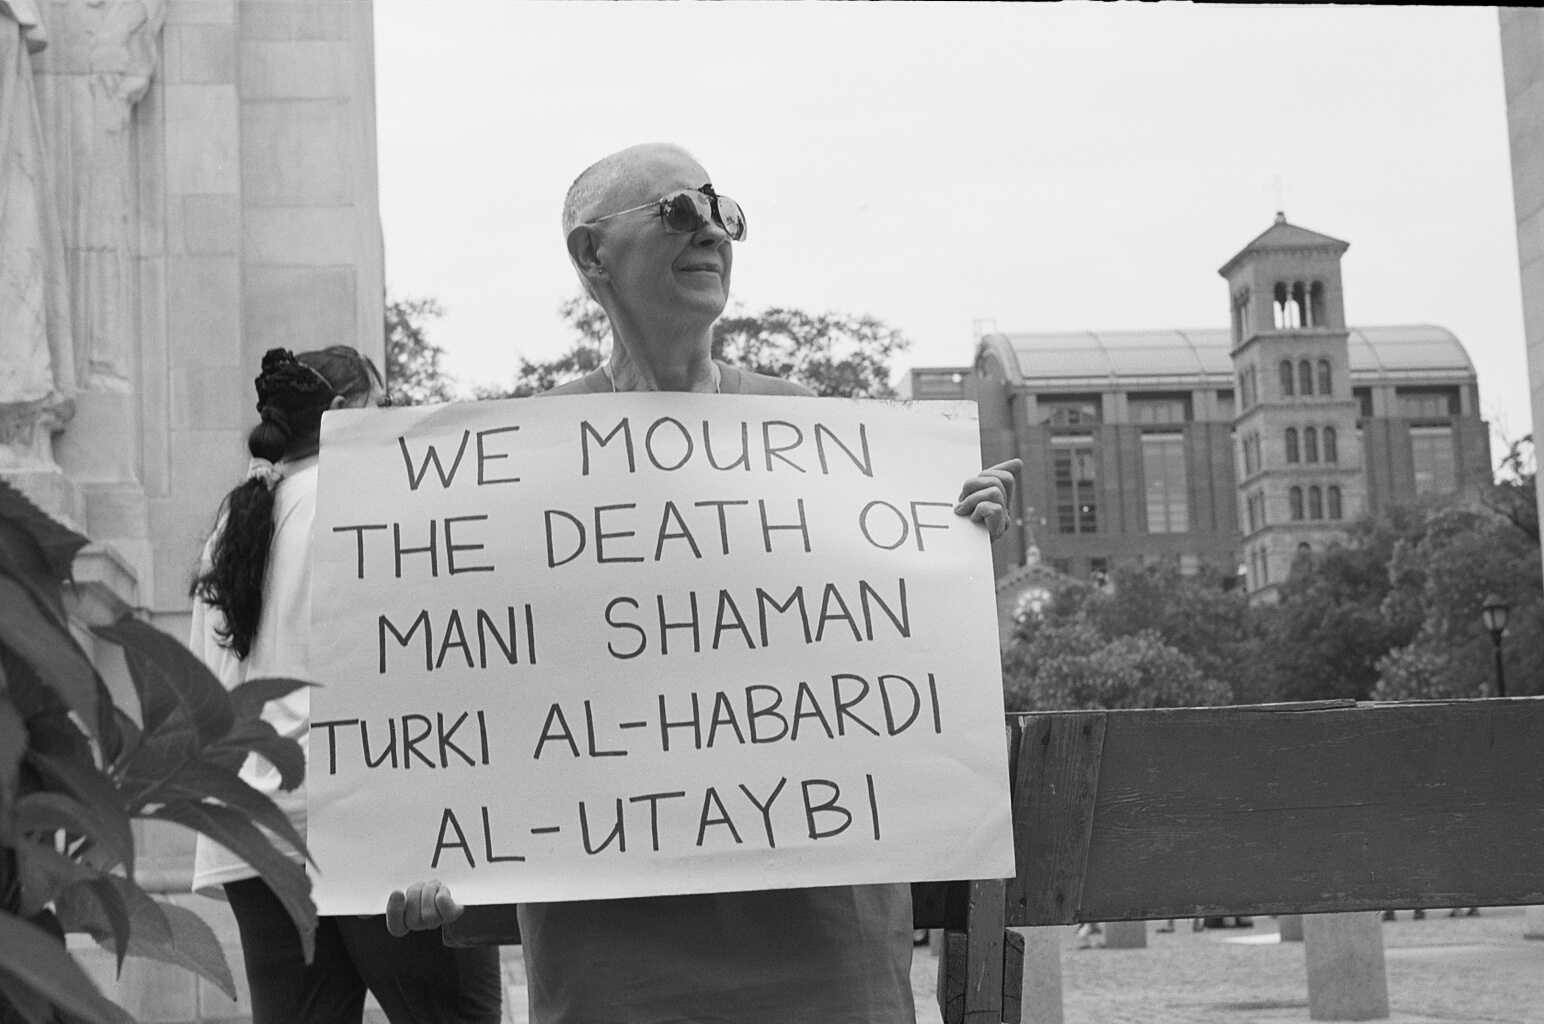 WE MOURN
THE DEATH OF
MANI SHAMAN
TURKI AL-HABARDI
AL-UTAYBI